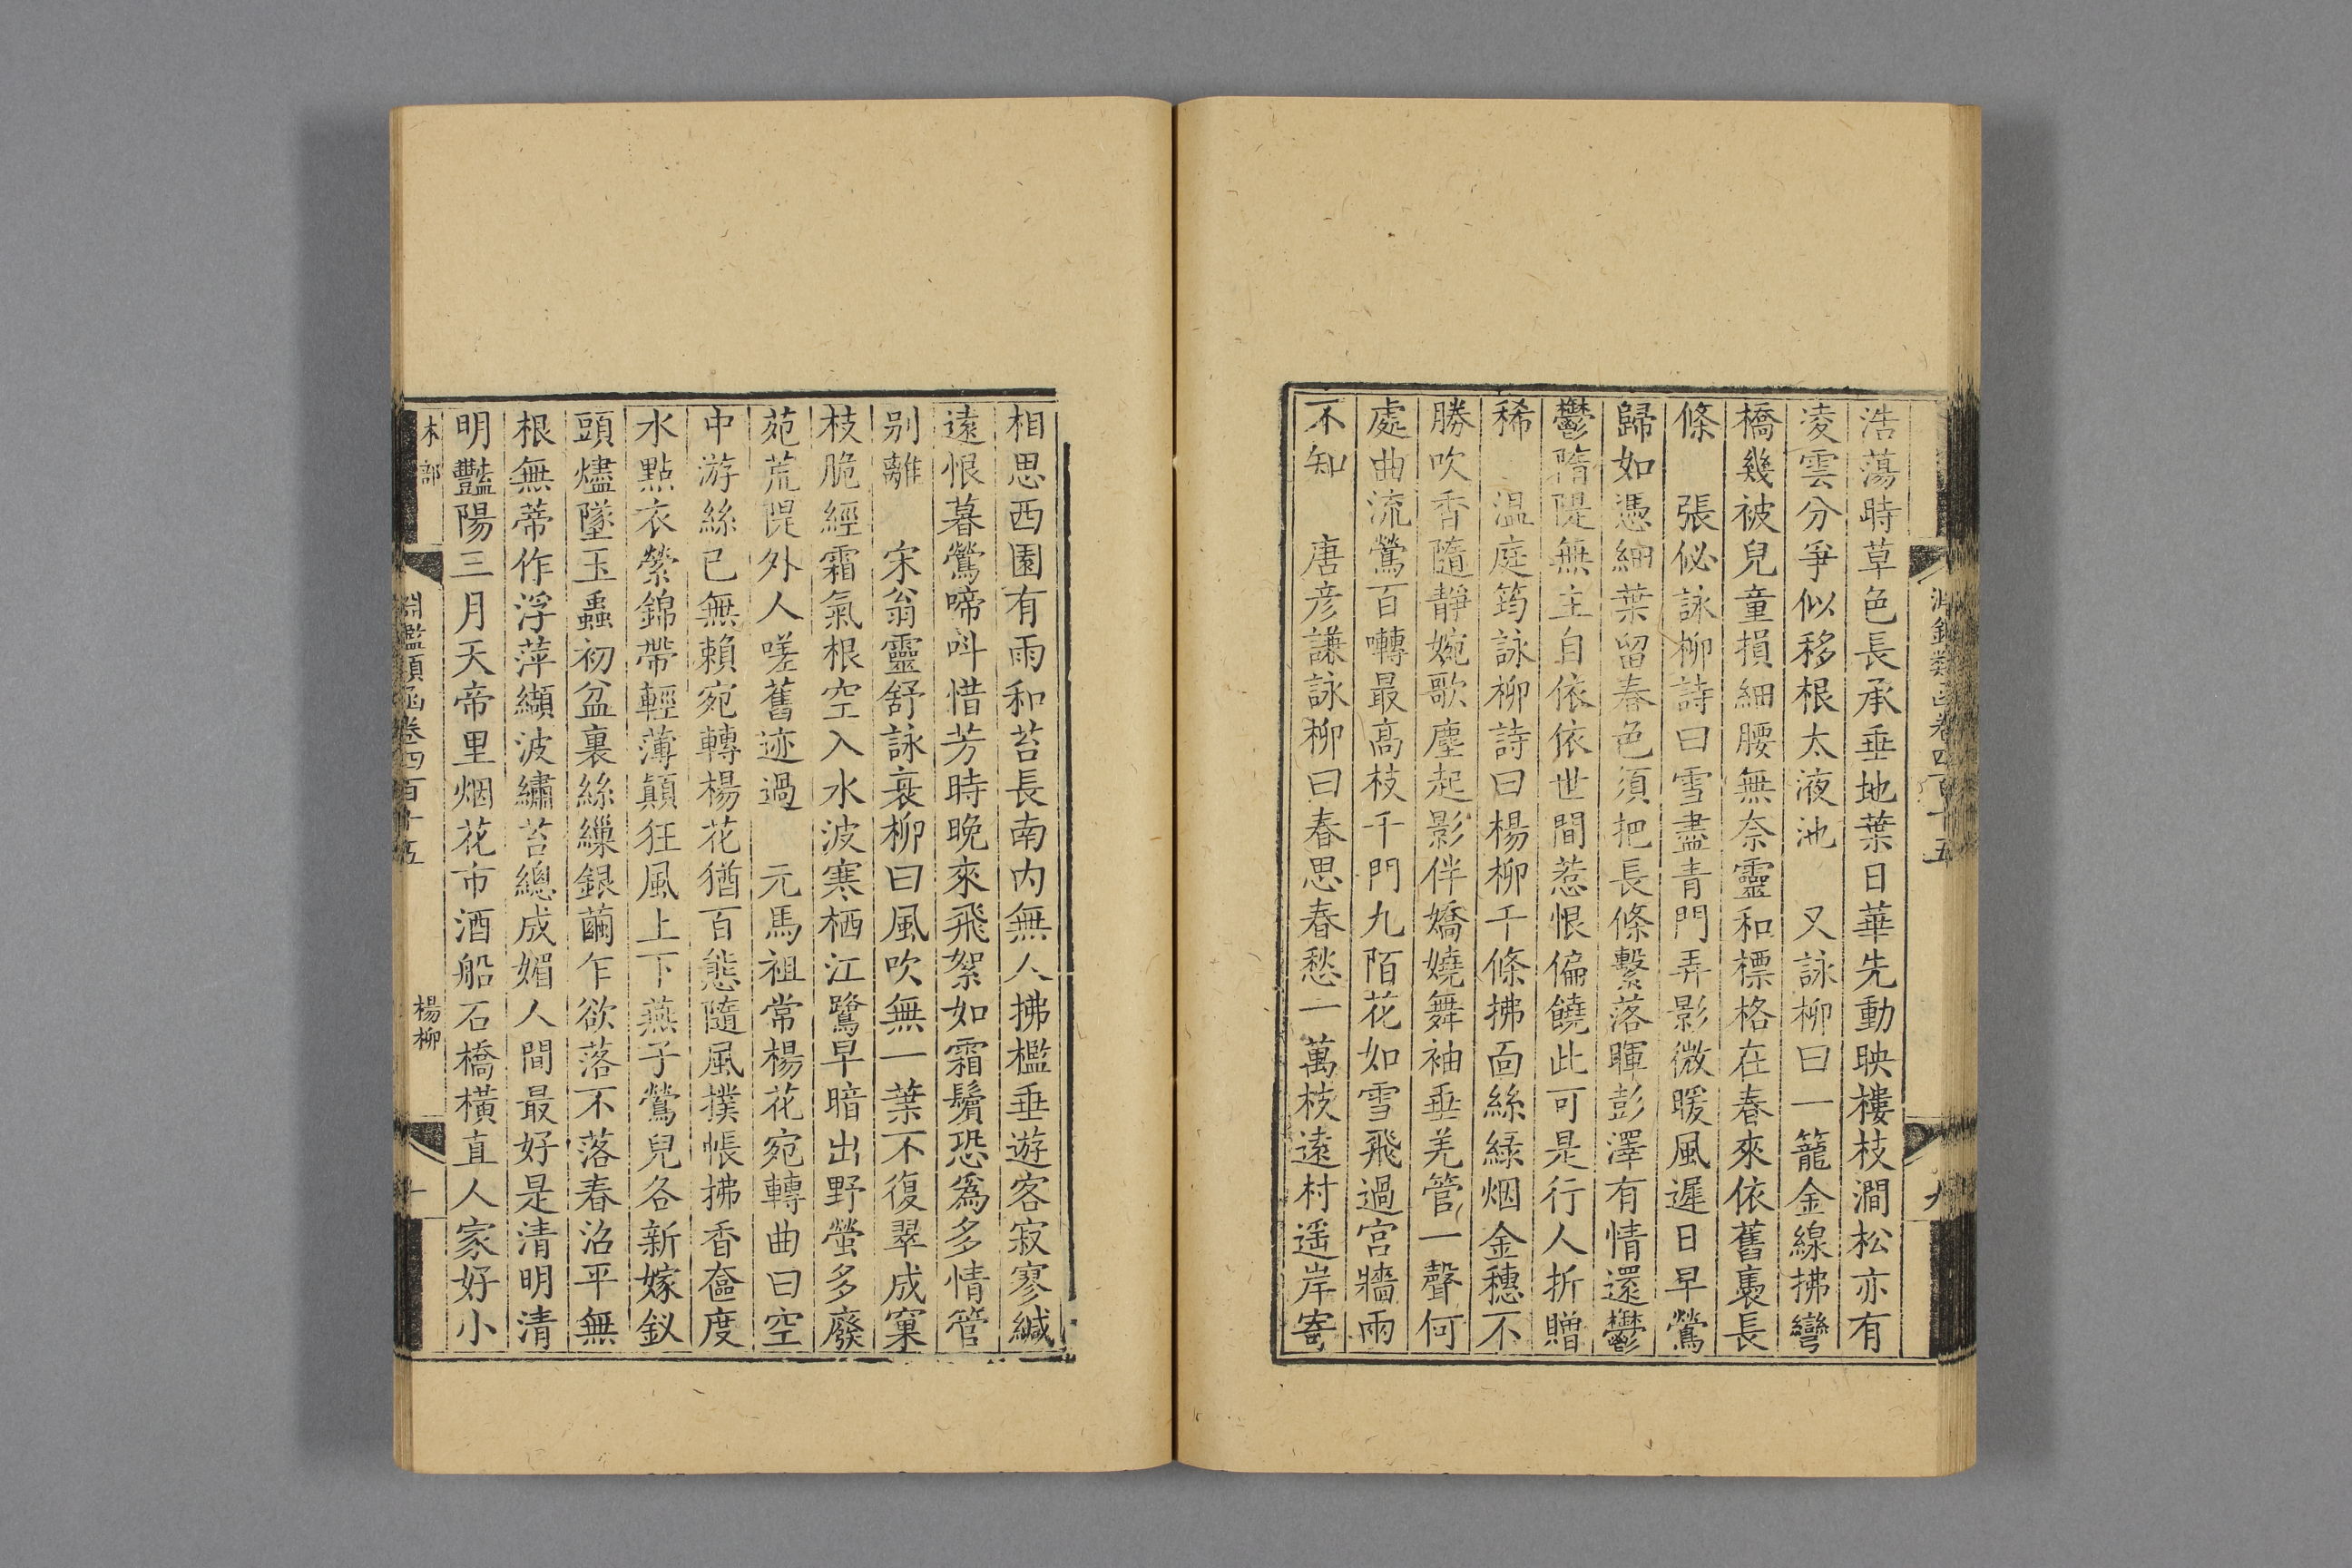 浩蕩時草色長承垂地葉日華先動映樓枝澗松亦有
凌雲分爭似移根太液池　又詠柳曰一籠金線拂彎
橋幾被兒童損細腰無奈靈和標格在春來依舊裊長
條　張佖詠柳詩曰雪盡青門弄影微暖風遲日早鶯
歸如憑細葉留春色須把長條繫落暉彭澤有情還鬱
鬱隋隄無主自依依世間惹恨偏饒此可是行人折贈
稀　溫庭筠詠柳詩曰楊柳千條拂面絲綠烟金穗不
勝吹香隨靜婉歌塵起影伴嬌嬈舞袖垂羌管一聲何
處曲流鶯百囀最高枝千門九陌花如雪飛過宮牆兩
不知　唐彦謙詠柳曰春思春愁一萬枝遠村遥岸寄
相思西園有雨和苔長南内無人拂檻垂遊客寂寥緘
遠恨暮鶯啼呌惜芳時晚來飛絮如霜鬢恐爲多情管
别離　宋翁靈舒詠衰柳曰風吹無一葉不復翠成窠
枝脆經霜氣根空入水波寒栖江鷺早暗出野螢多廢
苑荒隄外人嗟舊迹過　元馬祖常楊花宛轉曲曰空
中游絲已無賴宛轉楊花猶百態隨風撲帳拂香奩度
水點衣縈錦帶輕薄顛狂風上下燕子鶯兒各新嫁釵
頭燼墜玉蟲初盆裏絲繅銀繭乍欲落不落春沼平無
根無蒂作浮萍纈波繡苔總成媚人間最好是清明清
明豔陽三月天帝里烟花市酒船石橋横直人家好小
木部
淵鑑類函卷四百十五
楊柳